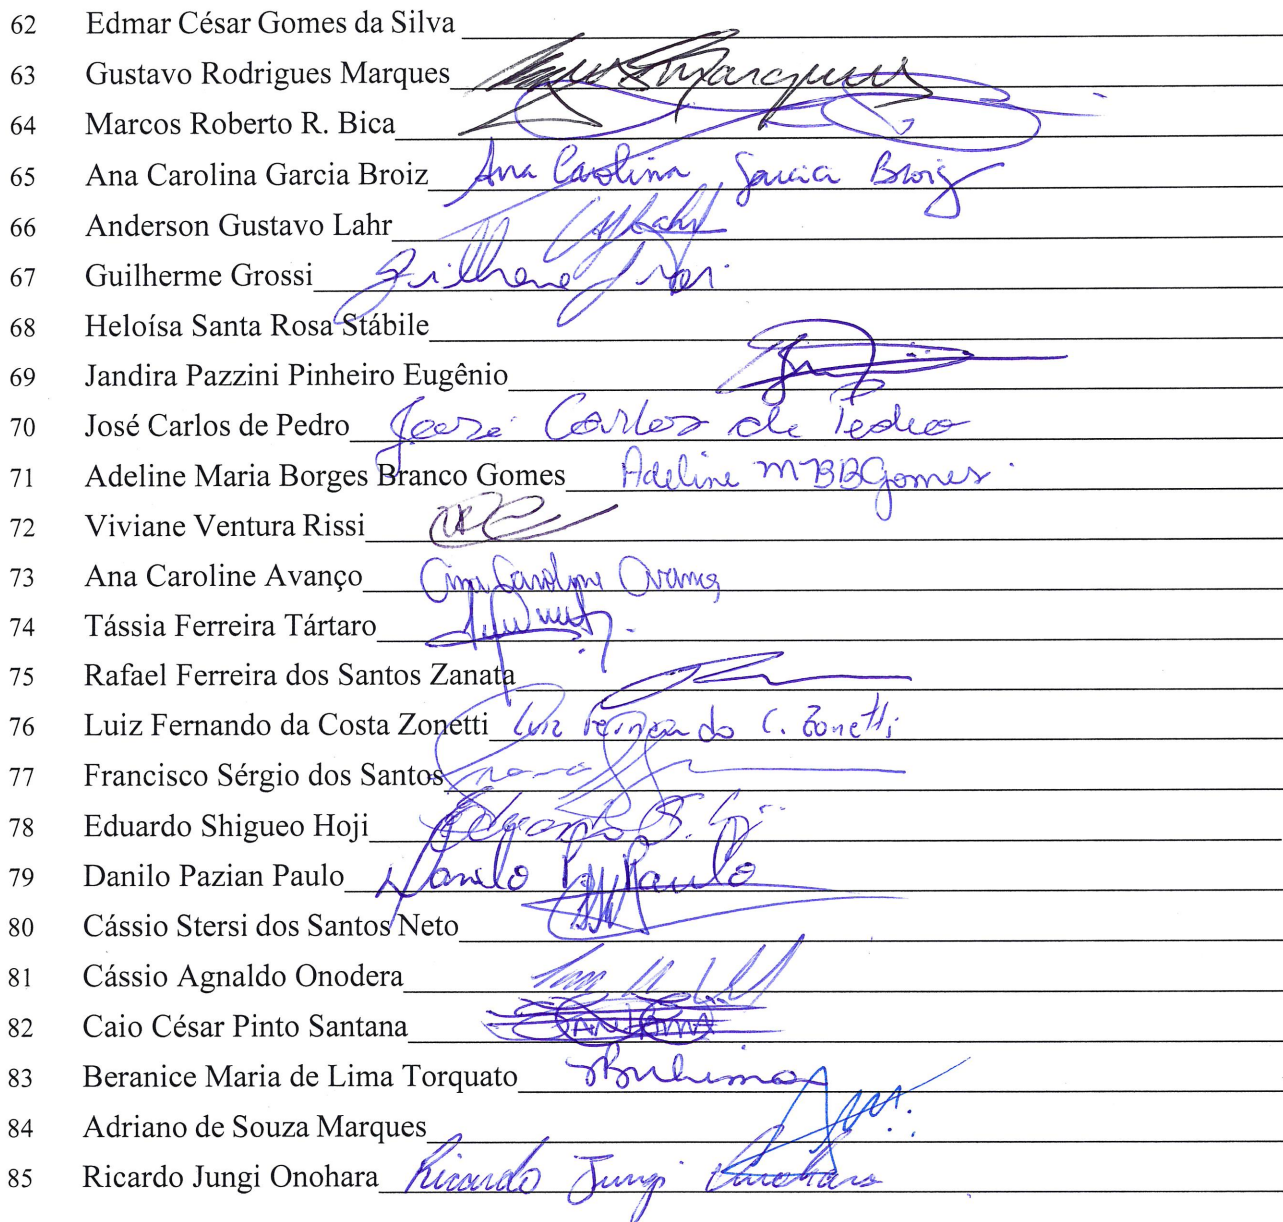 62 Edmar César Gomes da Silva
63 Gustavo Rodrigues Marques Marques
64 Marcos Roberto R. Bica
65 Ana Carolina Garcia Broiz Ana Carolina Garcia Broiz
66 Anderson Gustavo Lahr
67 Guilherme Grossi Guilherme
68 Heloísa Santa Rosa Stábile
69 Jandira Pazzini Pinheiro Eugênio
70 José Carlos de Pedro José Carlos de Pedro
71 Adeline Maria Borges Branco Gomes Adeline MBBGomes
72 Viviane Ventura Rissi
73 Ana Caroline Avanço Ana Caroline Avanço
74 Tássia Ferreira Tártaro
75 Rafael Ferreira dos Santos Zanata
76 Luiz Fernando da Costa Zonetti Luiz Fernando C. Zonetti
77 Francisco Sérgio dos Santos
78 Eduardo Shigueo Hoji Eduardo S. Hoji
79 Danilo Pazian Paulo Danilo P. Paulo
80 Cássio Stersi dos Santos Neto
81 Cássio Agnaldo Onodera
82 Caio César Pinto Santana
83 Beranice Maria de Lima Torquato
84 Adriano de Souza Marques
85 Ricardo Jungi Onohara Ricardo Jungi Onohara